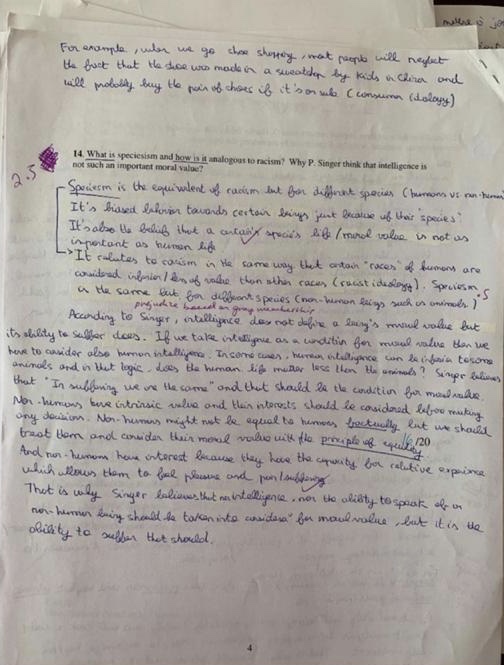 For example, when we go shoe shopping, most people will neglect
the fact that the shoe was made in a sweatshop by kids in China and
will probably buy the pair of shoes if it's on sale (consumer ideology)
2.5
14. What is speciesism and how is it analogous to racism? Why P. Singer think that intelligence is
not such an important moral value?
Speciesm is the equivalent of racism but for different species (humans vs non-human
It's biased behavior towards certain beings just because of their species.
It's also the beliefs that a certain species life / moral value is not as
important as human life
It relates to racism in the same way that certain "races" of humans are
considered inferior / less of value than other races (racist ideology). Speciesm
is the same but for different species (non-human beings such as animals.)
prejudice based on group membership
According to Singer, intelligence does not define a being's moral value but
its ability to suffer does. If we take intelligence as a condition for moral value then we
have to consider also human intelligence. In some cases, human intelligence can be inferior to some
animals and in that logic, does the human life matter less than the animals? Singer believes
that "In suffering we are the same" and that should be the condition for moral value.
Non-humans have intrinsic value and their interests should be considered before making
any decision. Non-humans might not be equal to humans factually but we should
treat them and consider their moral value with the principle of equality
/20
And non-humans have interest because they have the capacity for experience
which allows them to feel pleasure and pain/suffering
That is why Singer believes that no intelligence, nor the ability to speak of a
non-human being should be taken into considera° for moral value, but it is the
ability to suffer that should.
4